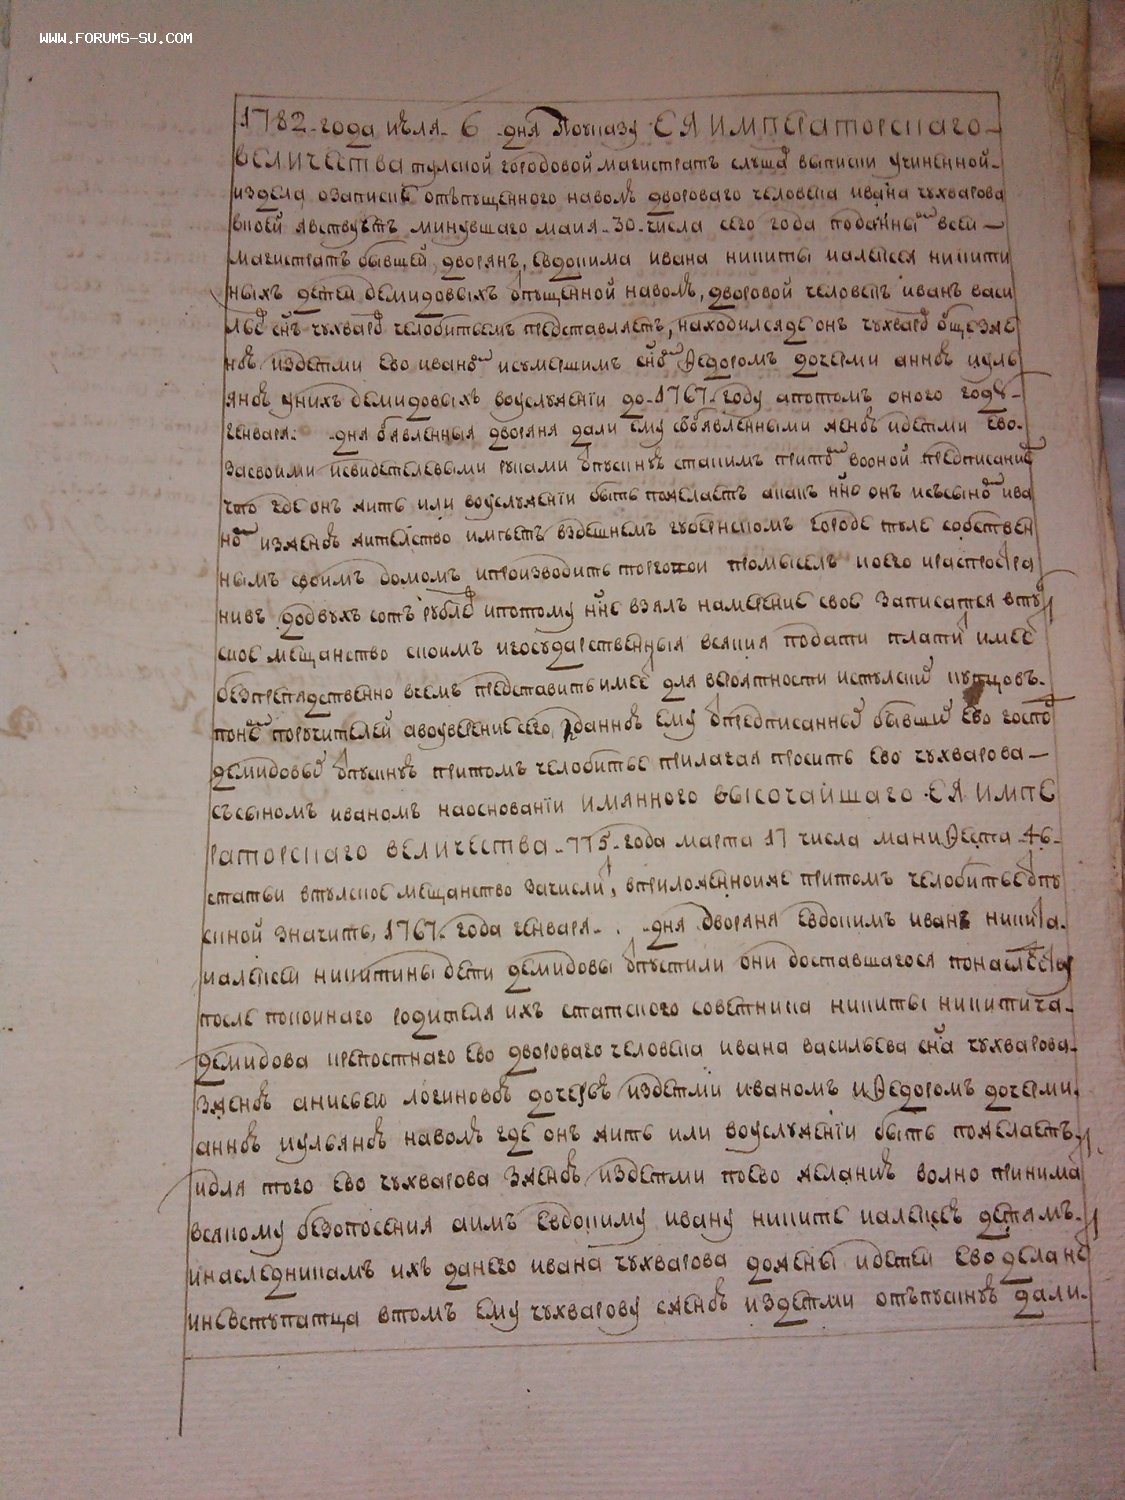 WWW.FORUMS-SU.COM
1782 года июля 6 дня Поуказу ЕЯ ИМПЕРАТОРСКАГО
ВЕЛИЧЕСТВА тулской городовой магистратъ слушав выписки учиненной
издела озаписке отъпущенного наволю дворового человека ивана чухварова
вкоей явствуетъ минувшаго маия 30 числа сего года поданным всей
магистратъ бывшей дворянъ, евдокима ивана никиты иалексея никити
ныхъ детей демидовыхъ отпущенной наволю, дворовой человекъ иванъ васи
льев снъ чухваров челобитьемъ представляетъ, находилсяде онъ чухваров обще зже
ною издетми ево иваном исумершим сном Федоромъ дочерми анною иуль
яною унихъ демидовыхъ воуслужении до 1767 году апотомъ оного году
генваря дня обявленныя дворяня дали ему собявленными женою идетми ево
засвоими исвидетелевыми руками отпускную стакимъ притом воной предписанием
что где онъ жить или воуслужении быть пожелаетъ акакъ нне онъ исъсыном ива
ном изженою жителство имеетъ вздешнемъ губернском городе туле собствен
нымъ своимъ домомъ ипроизводитъ торгокои промыселъ коего ираспростра
нивъ додвухъ сотъ рублев ипотому нне взялъ намерение свое записатся втул
ское мещанство скоимъ игосударственныя всякия подати платить имеет
безпрепядственно вчемъ представить имеет для вероятности истулских купцовъ
поручителей авоуверение сего, данною ему отпредписанных бывших ево господ
демидовых отпускную притомъ челобитье прилагая проситъ ево чухварова
съсыномъ иваномъ наосновании ИМЯННОГО ВЫСОЧАЙШАГО ЕЯ ИМПЕ
РАТОРСКАГО ВЕЛИЧЕСТВА 775 года марта 17 числа маниФеста 46
статьи втулское мещанство зачислить, вприложенноиже притомъ челобитье отпу
скной значитъ, 1767 года генваря дня дворяня евдокимъ иванъ никита
иалексей никитины дети демидовы отпустили они доставшагося понаследству
после покоинаго родителя ихъ статского советника никиты никитича
демидова крепостнаго ево дворового человека ивана васильева сна чухварова
зженою анисьею логиновою дочерью издетми иваномъ иФедоромъ дочерми
анною иульяною наволю где онъ жить или воуслужении быть пожелаетъ
идля того ево чухварова зженою издетми поево желанию волно принимать
всякому безопосения аимъ евдокиму ивану никите иалексею детямъ
инаследникамъ ихъ данего ивана чухварова дожены идетей ево дела нет
иневступатца втомъ ему чухварову сженою издетми отъпускную дали